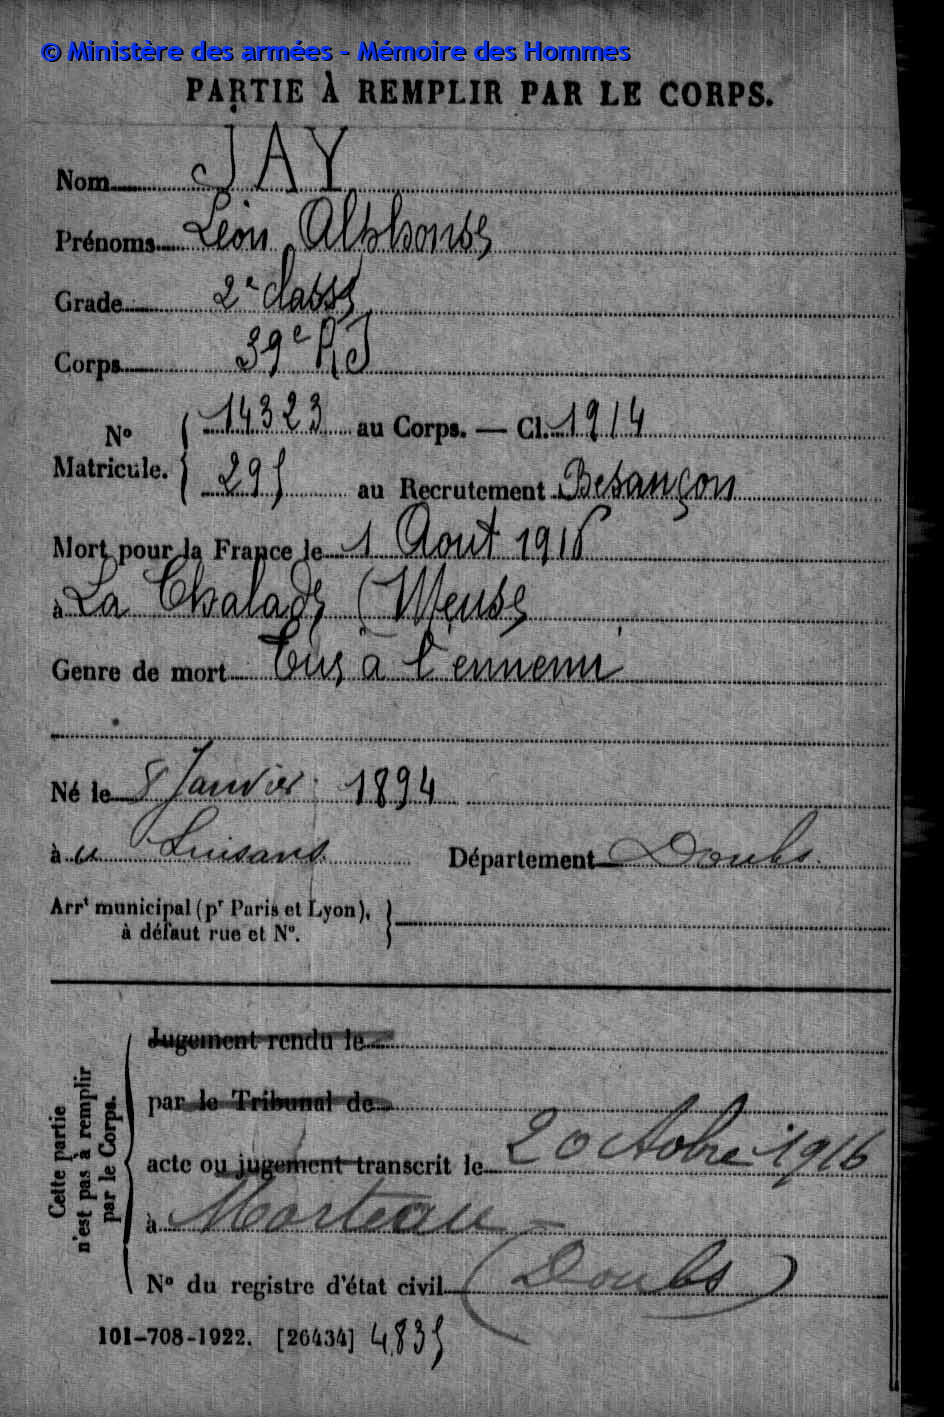 © Ministère des armées - Mémoire des Hommes
PARTIE À REMPLIR PAR LE CORPS.
Nom JAY
Prénoms Léon Alphonse
Grade 2e classe
Corps 39e RI
No Matricule. 14323 au Corps. — Cl. 1914
295 au Recrutement Besançon
Mort pour la France le 1 Aout 1916
à La Chalade (Meuse
Genre de mort Tué à l'ennemi
Né le 8 Janvier 1894
à Luisans Département Doubs
Arrt municipal (pr Paris et Lyon),
à défaut rue et No.
Cette partie
n'est pas à remplir
par le Corps.
Jugement rendu le
par le Tribunal de
acte ou jugement transcrit le 20 octobre 1916
à Morteau -
No du registre d'état civil (Doubs)
101-708-1922. [26434] 4835